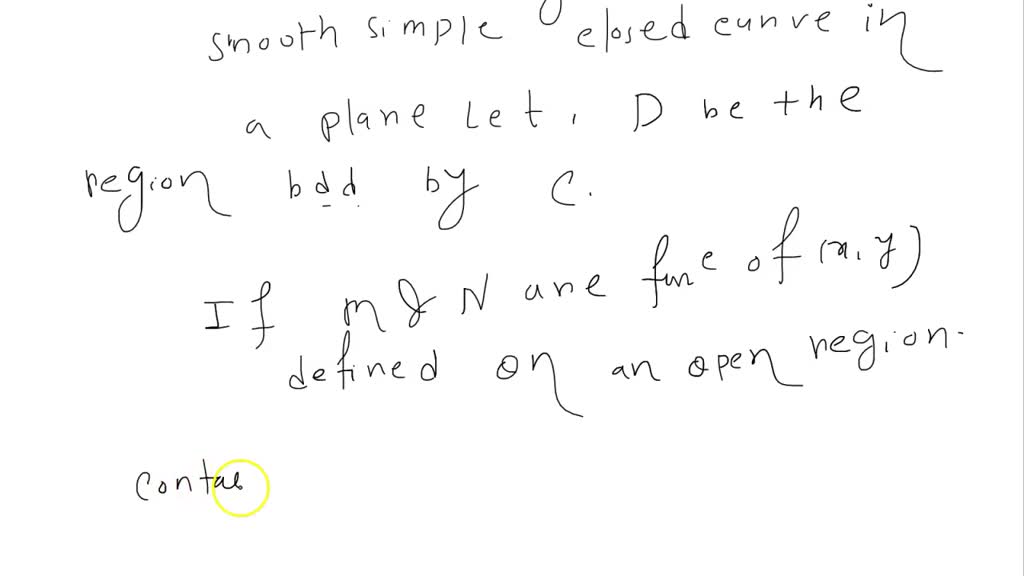 smooth simple closed curve in
a plane Let, D be the
region bdd by C.
If M & N are func of (x, y)
defined on an open region.
contai